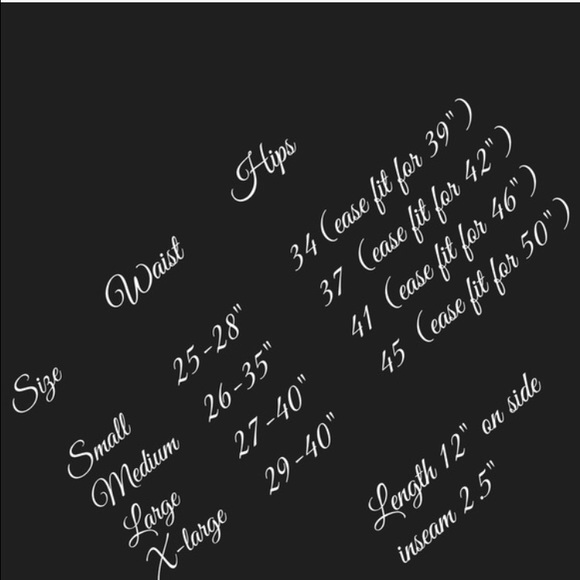 Size Waist Hips
Small 25-28" 34 (ease fit for 39")
Medium 26-35" 37 (ease fit for 42")
Large 27-40" 41 (ease fit for 46")
X-large 29-40" 45 (ease fit for 50")
Length 12" on side
inseam 2.5"